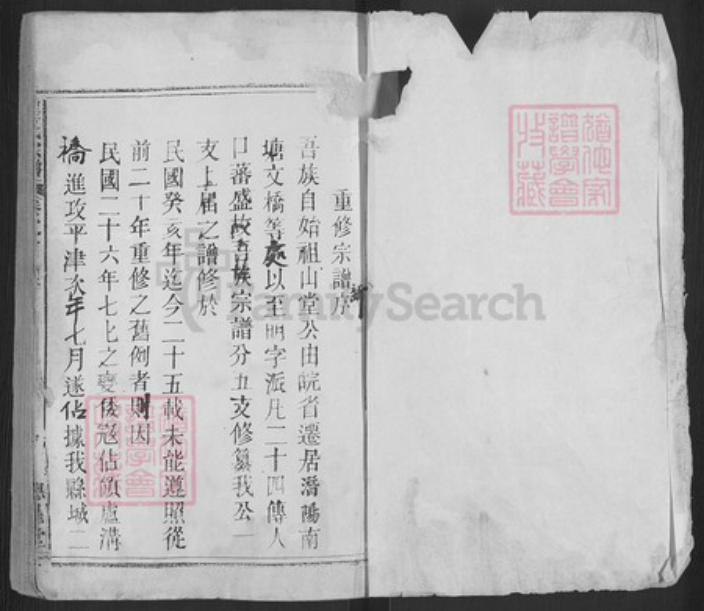 重修宗譜序
吾族自始祖山堂公由皖省遷居潛陽南
塘文橋等處以至明字派凡二十四傳人
口蕃盛故吾族宗譜分五支修纂我公一
支上届之譜修於
民國癸亥年迄今二十五載未能遵照從
前二十年重修之舊例者則因
民國二十六年七七之變倭寇佔領盧溝
橋進攻平津次年七月遂佔據我縣城二
猶他家
譜學會
收藏
FamilySearch